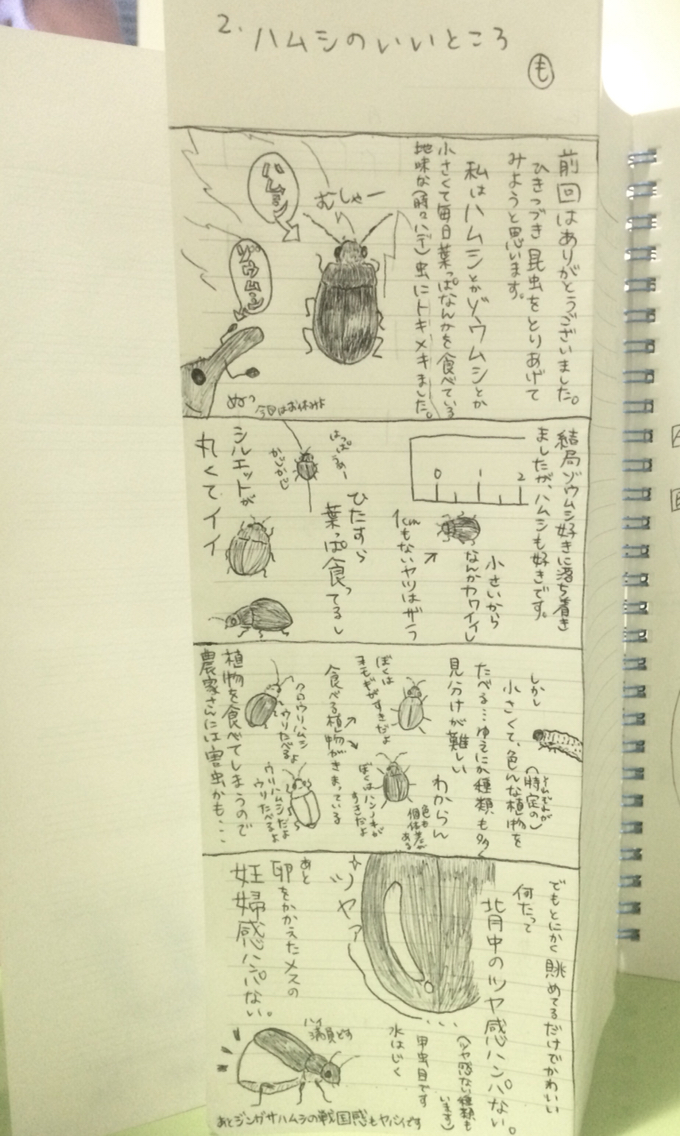 2. ハムシのいいところ
も
前回はありがとうございました。
ひきつづき昆虫をとりあげて
みようと思います。
私はハムシとかゾウムシとか
小さくて毎日葉っぱなんかを食べている
地味な(時々ハデ)虫にトキメキました。
むしゃー
ハムシ
ゾウムシ
ぬっ
今回はお休みよ
結局ゾウムシ好きに落ち着き
ましたが、ハムシも好きです。
0 1 2
小さいから
なんかカワイイし
1cmもないヤツはザラ
ひたすら
葉っぱ食ってるし
はっぱうめー
カジカジ
シルエットが
丸くてイイ
しかし
小さくて、色んな植物を
(特定の)
たべる…ゆえにか種類も多く
見分けが難しい
わからん
色も
個体差が
ある
ぼくは
ヨモギがすきだよ
ぼくはハンノキが
すきだよ
食べる植物がきまっている
クロウリハムシ
ウリたべるよ
ウリハムシだよ
ウリたべるよ
植物を食べてしまうので
農家さんには害虫かも…
でもとにかく眺めてるだけでかわいい
何たって
背中のツヤ感ハンパない。
(ツヤ感ない種類も
います)
甲虫目です
水はじく
ツヤァ
あと
卵をかかえたメスの
妊婦感ハンパない。
ハイ
満員です
あとジンガサハムシの戦国感もヤバイです